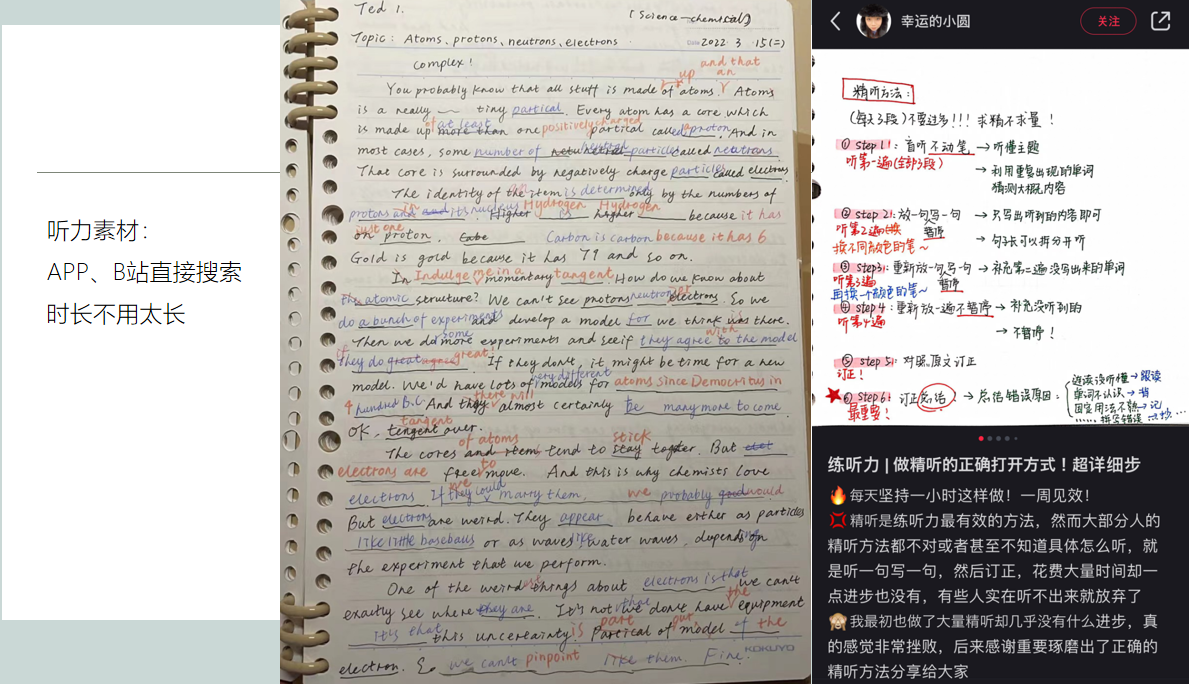 听力素材：
APP、B站直接搜索
时长不用太长
Ted 1.
(Science-chemical)
Topic: Atoms, protons, neutrons, electrons
Date 2022. 3. 15(二)
complex!
up and that
an
You probably know that all stuff is made of atoms. Atoms
is a really tiny partical. Every atom has a core which
of at least positively charged
is made up more than one partical called proton. And in
most cases, some number of neutral particles called neutrons.
That core is surrounded by negatively charge particles called electrons.
The identity of the item is determined only by the numbers of
protons and in its nucleus. Hydrogen is Hydrogen because it has
just one
on proton. Carbon is carbon because it has 6
Gold is gold because it has 79 and so on.
In Indulge me in a momentary tangent. How do we know about
the atomic struture? We can't see protons neutron or electrons. So we
do a bunch of experiments and develop a model for we think is there.
some with
Then we do more experiments and see if they agree to the model
if
They do great great! If they don't, it might be time for a new
very different
model. We'd have lots of models for atoms since Democritus in
there will
4 hundred b.c. And they almost certainly be many more to come.
tangent
OK, tengent over.
of atoms stick
The cores and item tend to stay together. But
electrons are free to move. And this is why chemists love
electrons. If we they could marry them, we probably would
But electrons are weird. They appear behave either as particles
like little baseballs or as waves like water waves, depending on
the experiment that we perform.
One of the weirdest things about electrons is that we can't
exactly see where they are. It's not that we don't have the equipment
It's that this uncertainty is part Partical of our model of the
electron. So we can't pinpoint like them. Fine.
KOKUYO
幸运的小圆
关注
精听方法：
(每天3段)不要过多!!! 求精不求量！
① step 1: 盲听 不动笔 → 听懂主题
听第一遍(全部3段)
→ 利用重复出现的单词
猜测大概内容
② step 2: 放一句写一句 → 只写出听到的内容即可
听第2遍 换 暂停
→ 句子长可以拆分开听
换不同颜色的笔~
③ step3: 重新放一句写一句 → 补充第二遍没写出来的单词
听第3遍 暂停
再换一个颜色的笔~
④ step 4: 重新放一遍不暂停 → 补充没听到的
听第4遍
→ 不暂停！
⑤ step 5: 对照原文订正
订正！
⑥ step6: 订正总结 → 总结错误原因：
最重要！
连读没听懂→跟读
单词不认识→背
固定用法不熟→记
……拼写错误→抄…
练听力 | 做精听的正确打开方式！超详细步
🔥每天坚持一小时这样做！一周见效！
💢精听是练听力最有效的方法，然而大部分人的
精听方法都不对或者甚至不知道具体怎么听，就
是听一句写一句，然后订正，花费大量时间却一
点进步也没有，有些人实在听不出来就放弃了
🙈我最初也做了大量精听却几乎没有什么进步，真
的感觉非常挫败，后来感谢重要琢磨出了正确的
精听方法分享给大家